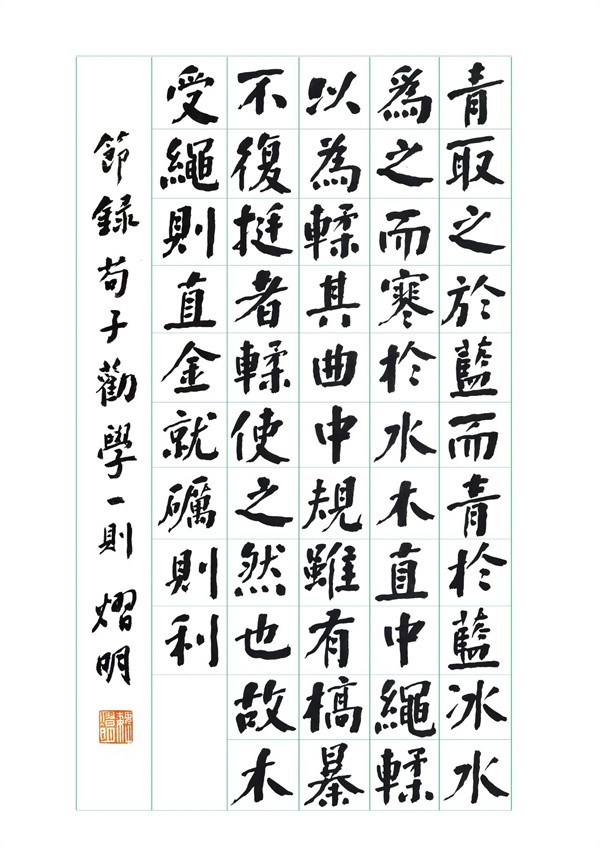 青取之於藍而青於藍冰水
爲之而寒於水木直中繩輮
以為輮其曲中規雖有槁暴
不復挺者輮使之然也故木
受繩則直金就礪則利
節録荀子勸學一則 熠明